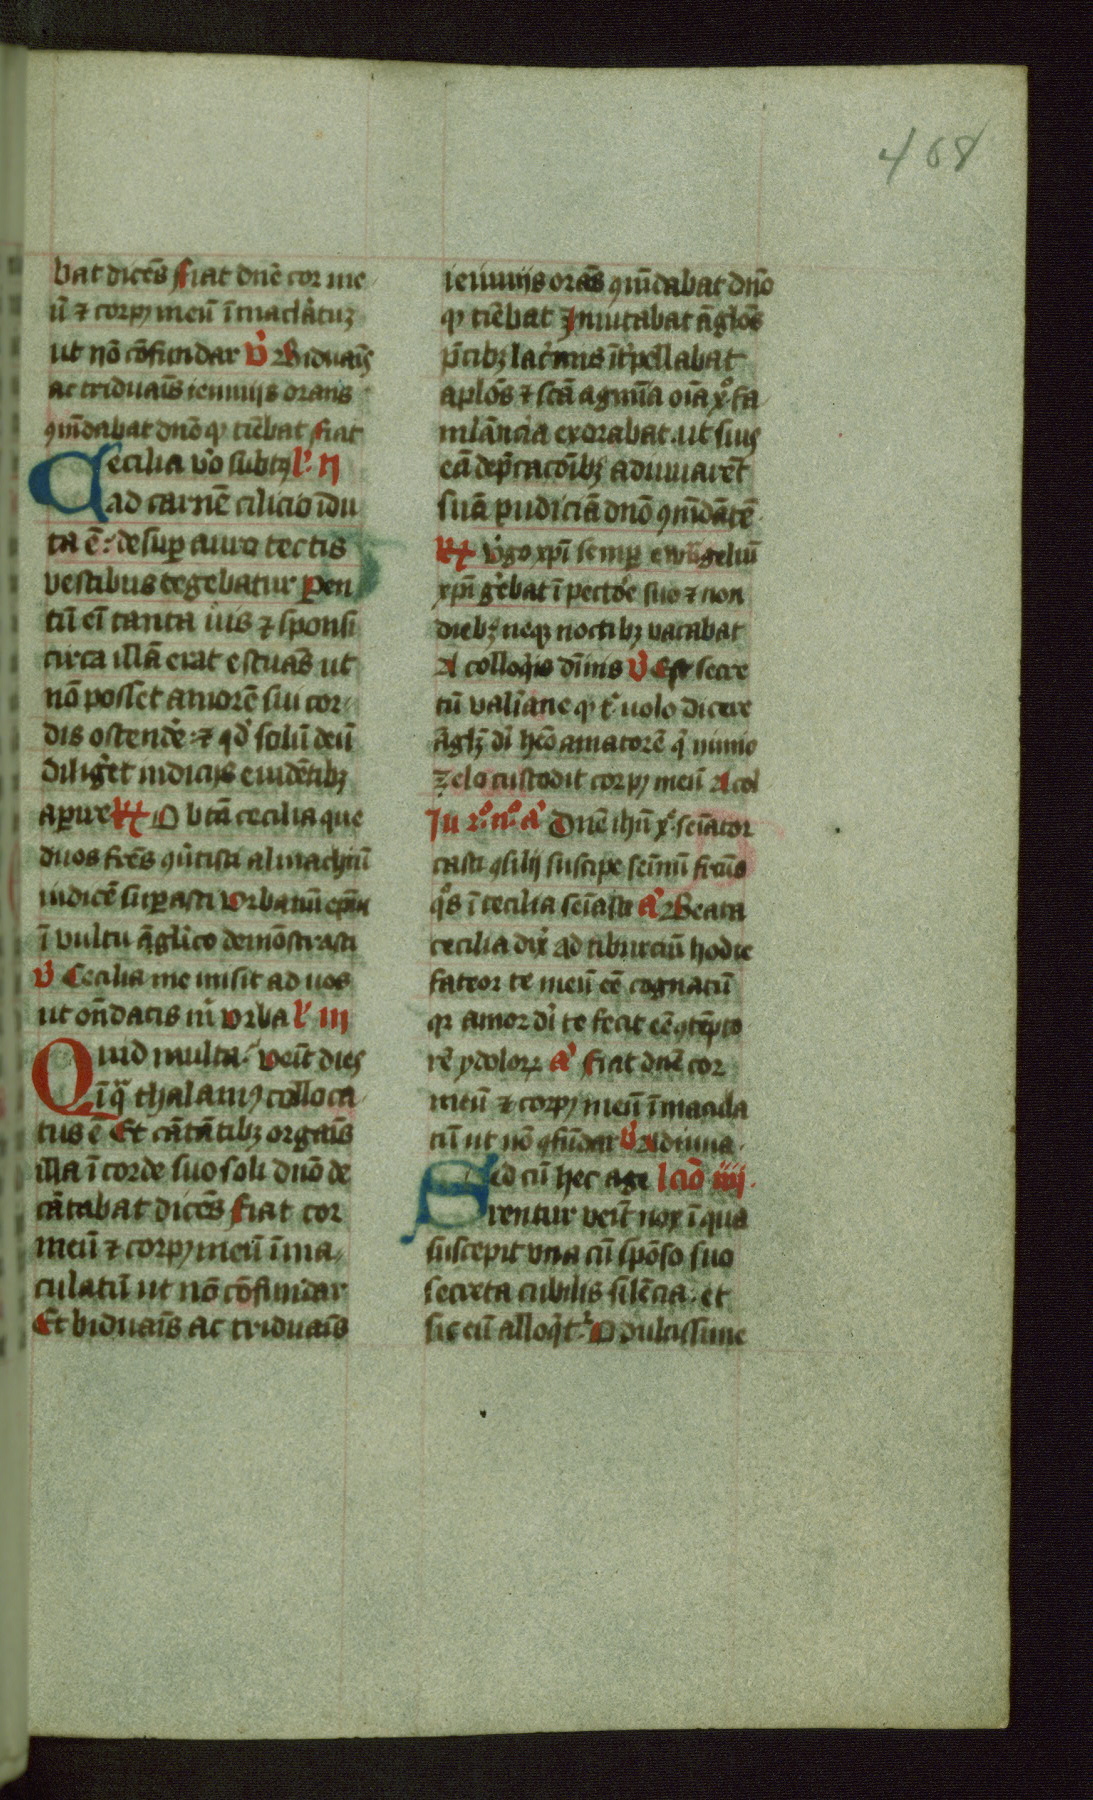 468
bat dicēs fiat dn̄e cor me
ū ⁊ corpꝰ meū īmaclātuꝫ
ut nō cōfundar v̓ Biduaīs
ac triduaīs ieiuniis orans
ꝯmēdabat dn̄o qᵈ timēbat fiat
Cecilia v̓o subtꝫ l̓. ii
ad carnē cilicio īdu
ta ē: desup̱ auro tectis
vestibus tegebatur p̱en
tū eī tanta uis ⁊ sponsi
circa illā erat estuās ut
nō posset amorē sui cor
dis ostende̓ ⁊ qd̓ solū deū
diligēt indiciis euidētibꝫ
ap̱ire R̸ O bt̄a cecilia que
duos fr̄es ꝯūtisti almachiū
iudicē sup̱asti vrbanū ep̄m
ī vultu āgl̓ico demōstrasti
v̓ Cecilia me misit ad uos
ut on̄datis m̓ vrba l̓ iii
Quid multa. veīt dies
ī q̄ thalamꝰ colloca
tus ē Et cātātibꝫ orgaīs
illa ī corde suo soli dn̄o de
cātabat dicēs fiat cor
meū ⁊ corpꝰ meū īma
culatū ut nō cōfundar
Et biduaīs ac triduaīs
ieiuniis orās ꝯmēdabat dn̄o
qᵈ timēbat Inuitabat āglōs
p̄cibꝫ lac̓mis īt̓pellabat
apl̄os ⁊ sc̄ā agmīa oīa xᵒ fa
mlāncia exorabat. ut suis
eā dep̄cacōībꝫ adiuuarēt
suā pudiciā dn̄o ꝯmēdātē
R̸ v̓go xp̄i semp̱ ewāgeliū
xp̄i gēbat ī pectoē suo ⁊ non
diebꝫ neqꝫ noctibꝫ vacabat
A colloqi̓s dīnis v̓ Est secre
tū valīane qᵈ t̓ uolo dicere
āglꝫ dī hēo amatorē qⁱ nimio
zelo custodit corpꝰ meū A col
Iu 2ᵒ. nᵒ. a̓ Dn̄e ihū xᵒ. seīator
casti ꝯsilii suscipe seīnū frūs
qᵒs ī cecilia seīasti a̓ Beata
cecilia dix̓ ad tiburciū hodie
fateor te meū eē cognatū
qꝛ amor dī te fecit eē ꝯtēpto
rē ydoloꝝ a̓ fiat dn̄e cor
meū ⁊ corpꝰ meū īmacula
tū ut nō ꝯfūdar v̓ Adiuua.
Sed cū hec age lcīo iiii.
rentur veīt nox ī qua
suscepit vna cū spōso suo
secreta cubilis silēcia. et
sic eū alloqⁱt: O dulcissime